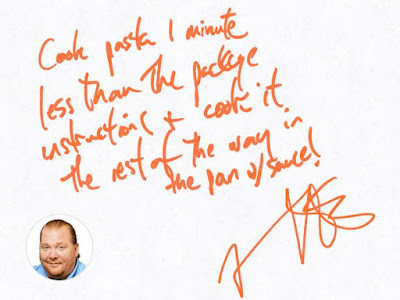 Cook pasta 1 minute
less than the package
instructions & cook it
the rest of the way in
the pan w/sauce!